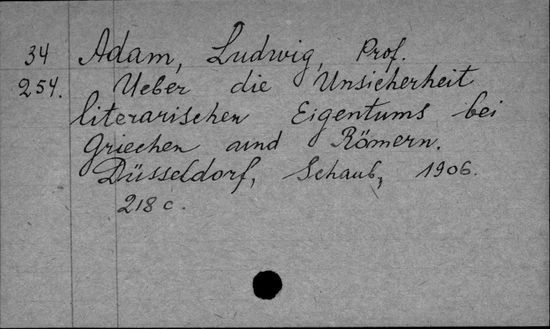 34 Adam, Ludwig, Prof.
254. Ueber die Unsicherheit
literarischen Eigentums bei
Griechen und Römern.
Düsseldorf, Schaub, 1906.
218 c.